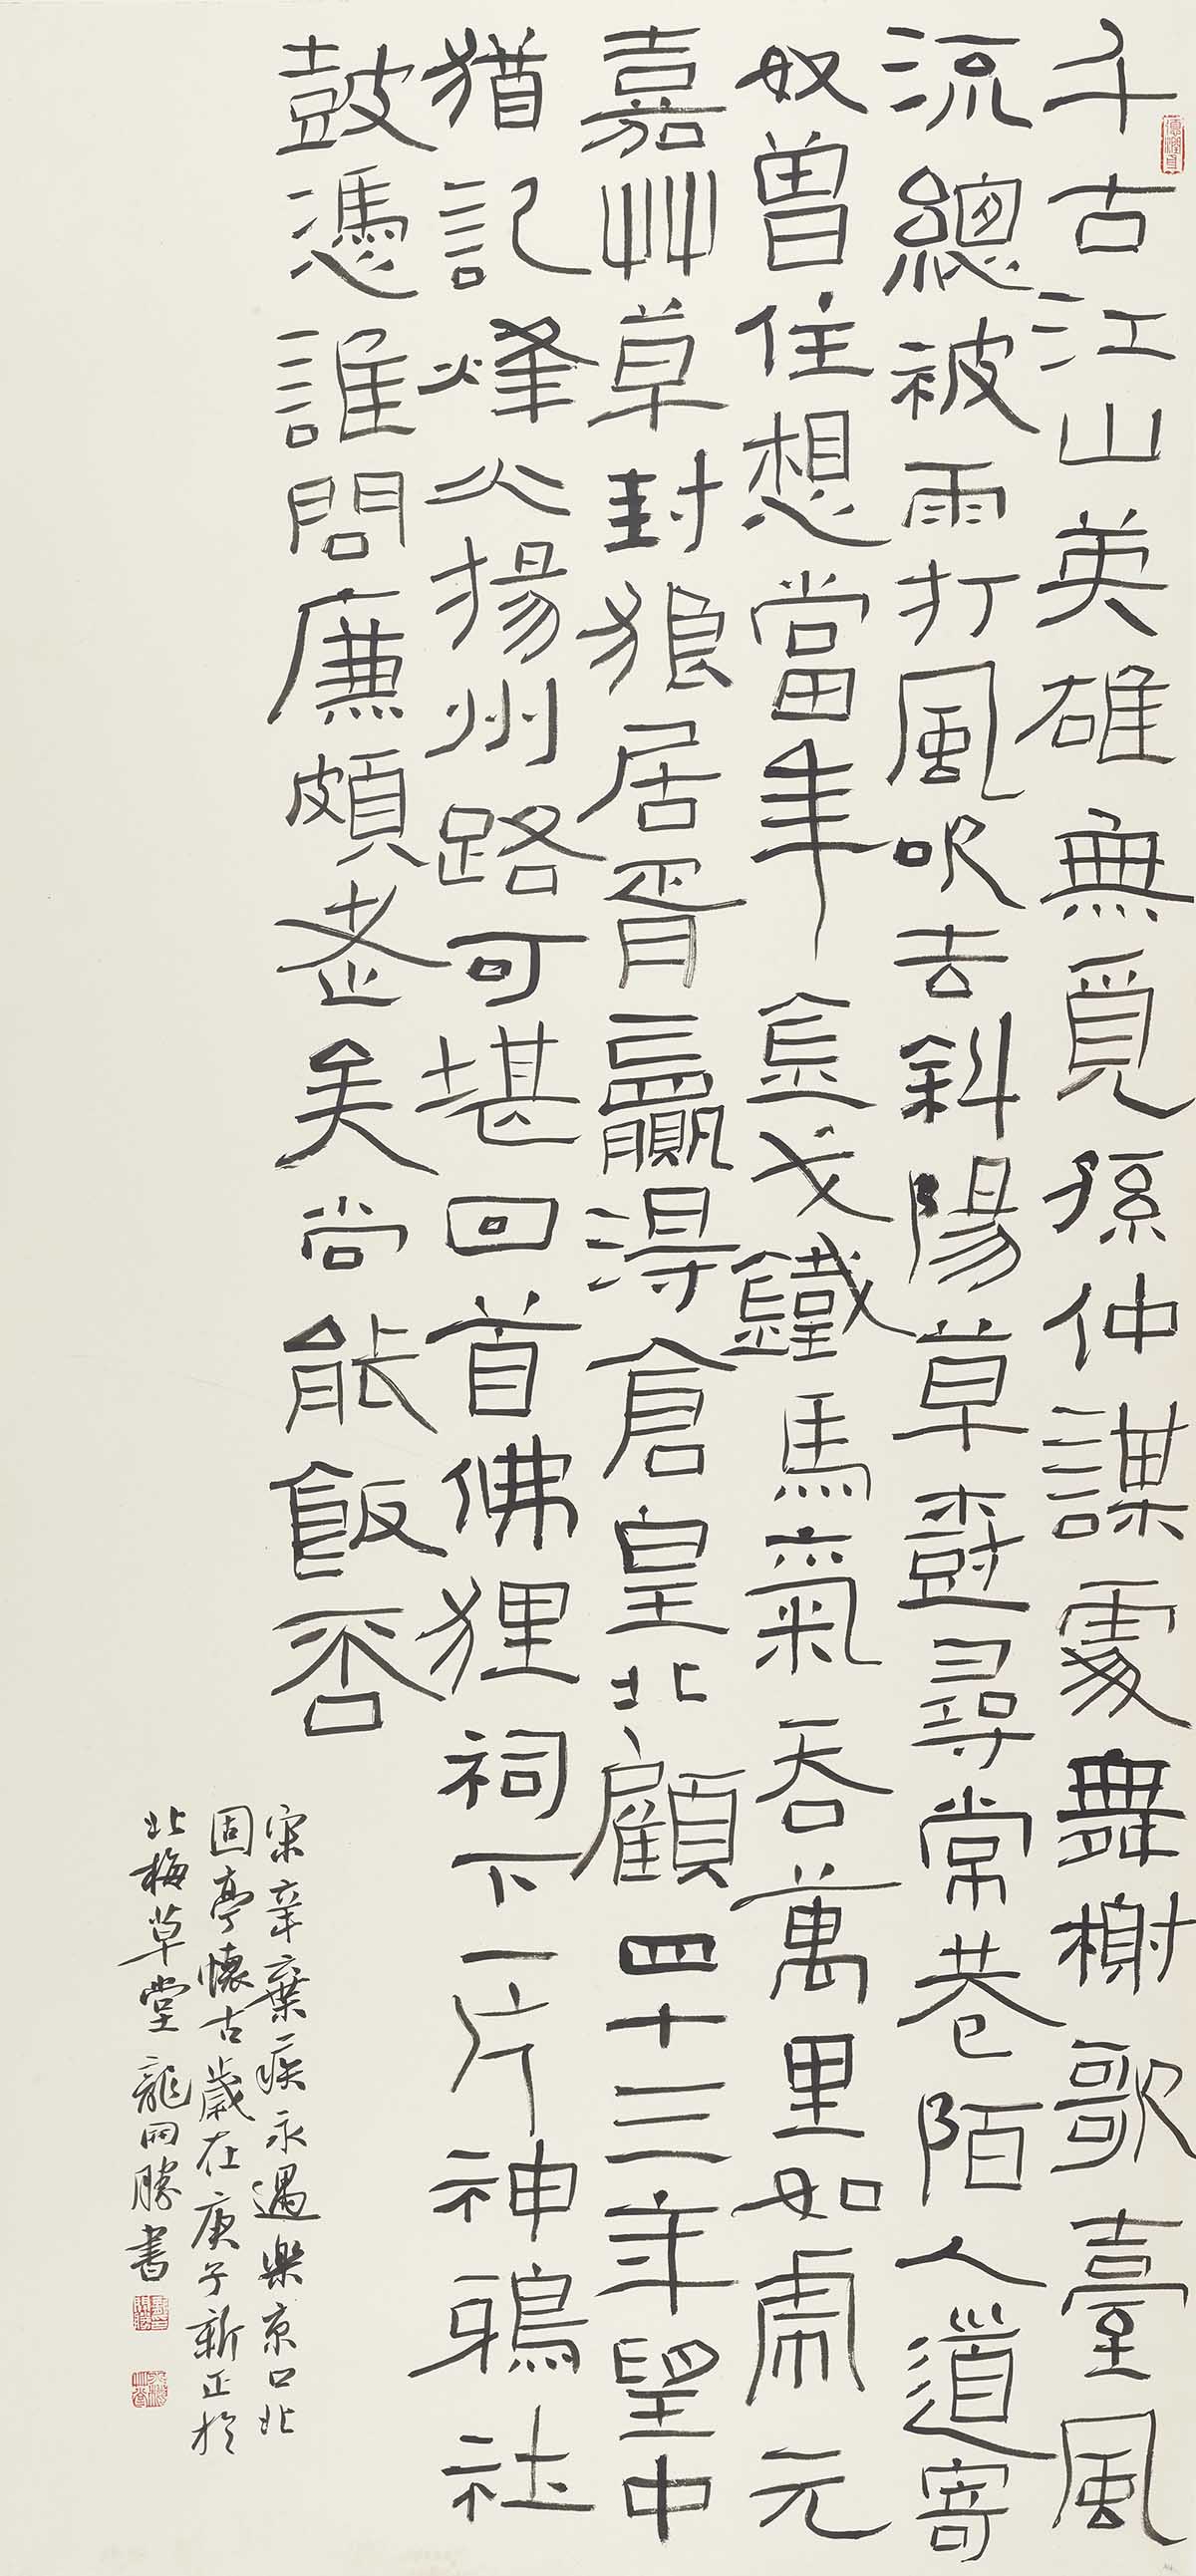 千古江山英雄無覓孫仲謀處舞榭歌臺風
流總被雨打風吹去斜陽草樹尋常巷陌人道寄
奴曾住想當年金戈鐵馬氣吞萬里如虎元
嘉艸草封狼居胥贏得倉皇北顧四十三年望中
猶記烽火揚州路可堪回首佛狸祠下一片神鴉社
鼓憑誰問廉頗老矣尚能飯否
宋辛棄疾永遇樂京口北
固亭懷古歲在庚子新正於
北梅草堂龍開勝書